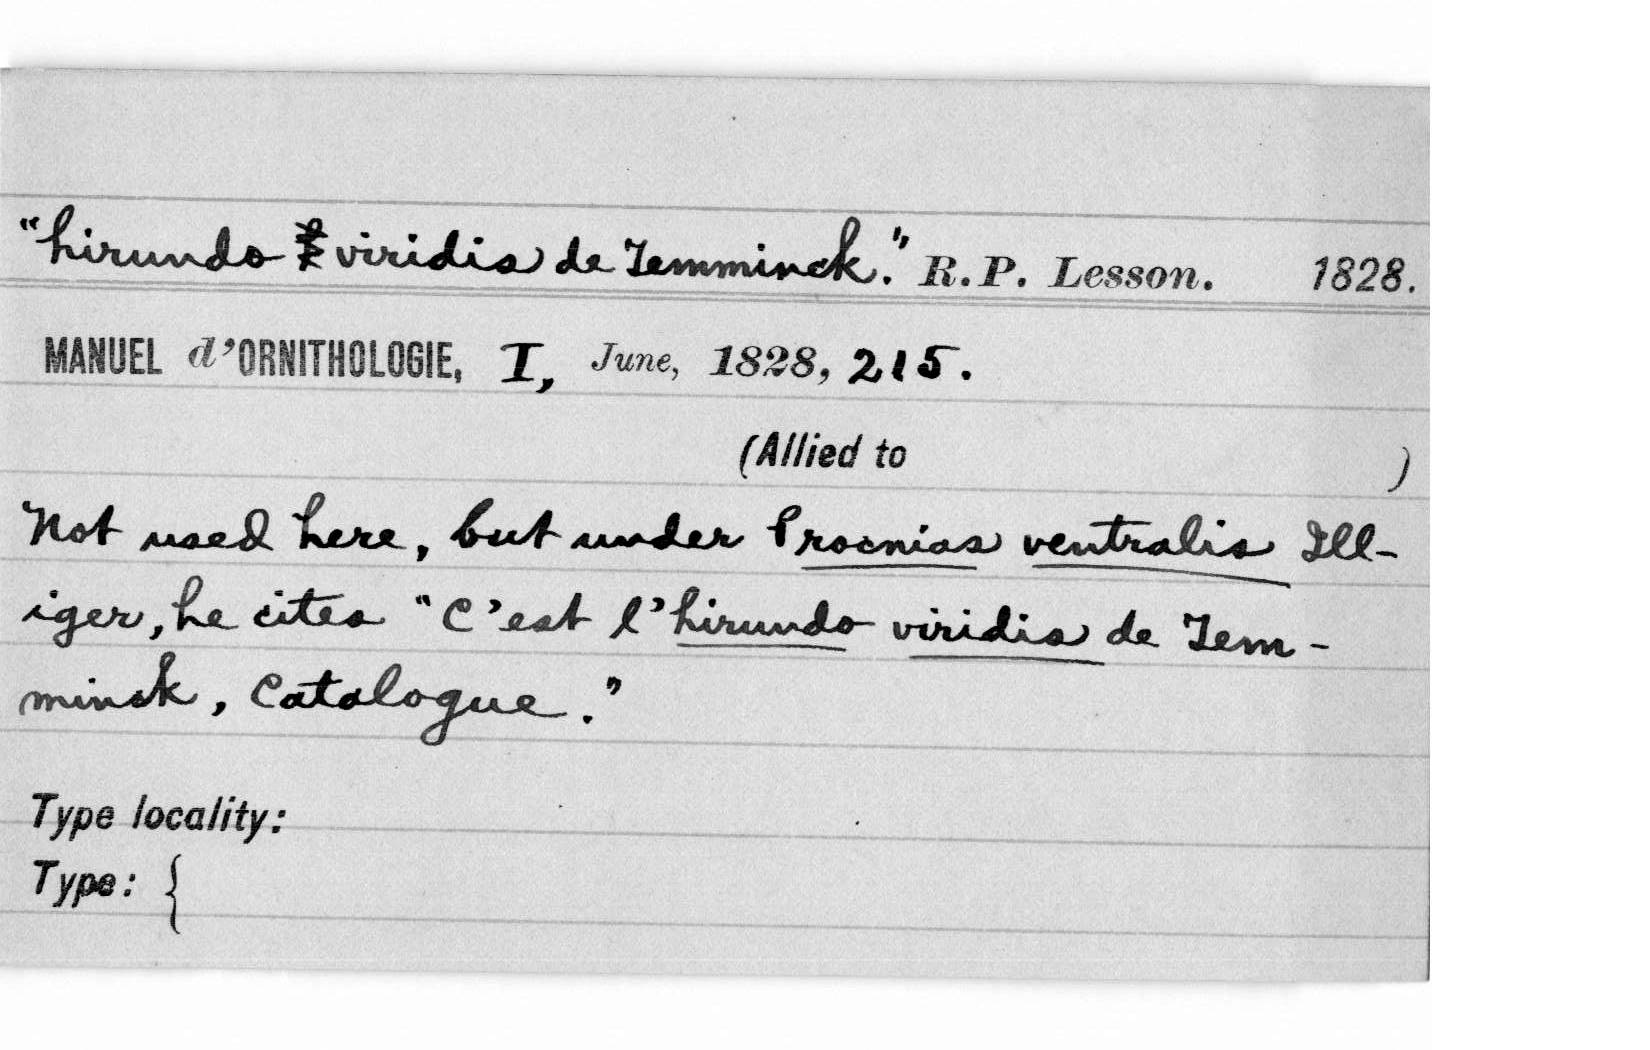 "hirundo viridis de Temminck." R.P. Lesson. 1828.
MANUEL d'ORNITHOLOGIE, I, June, 1828, 215.
(Allied to )
Not used here, but under Procnias ventralis Ill-
iger, he cites "C'est l'hirundo viridis de Tem-
minck, Catalogue."
Type locality:
Type: {